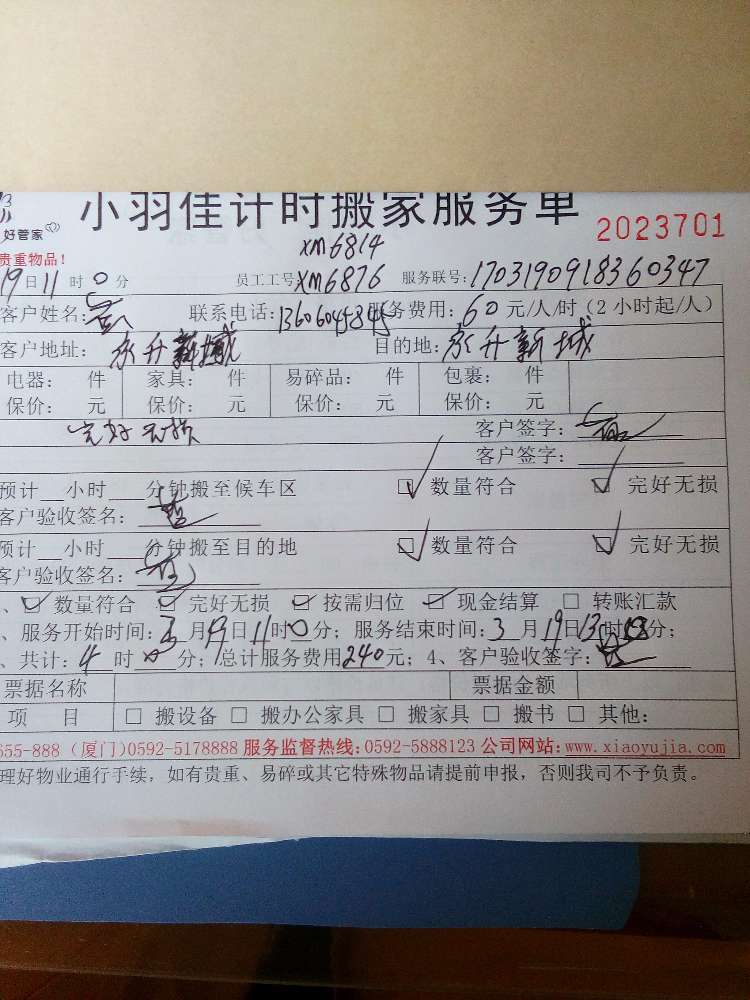 小羽佳计时搬家服务单 2023701
好管家
XM6814
贵重物品！
19日11时0分 员工工号XM6876 服务联号:1703190918360347
客户姓名: 联系电话:13606045845 服务费用:60元/人/时(2小时起/人)
客户地址: 永升新城 目的地:永升新城
电器: 件 家具: 件 易碎品: 件 包裹: 件
保价: 元 保价: 元 保价: 元 保价: 元
完好无损 客户签字:
客户签字:
预计__小时___分钟搬至候车区 ☑ 数量符合 ☑ 完好无损
客户验收签名:
预计__小时___分钟搬至目的地 ☑ 数量符合 ☑ 完好无损
客户验收签名:
、☑ 数量符合 ☑ 完好无损 ☑ 按需归位 ☑ 现金结算 □ 转账汇款
、服务开始时间:3月19日11时0分; 服务结束时间:3月19日13时分;
、共计:4时0分; 总计服务费用240元; 4、客户验收签字:
票据名称 票据金额
项 目 □ 搬设备 □ 搬办公家具 □ 搬家具 □ 搬书 □ 其他:
655-888 (厦门)0592-5178888 服务监督热线:0592-5888123 公司网站:www.xiaoyujia.com
理好物业通行手续，如有贵重、易碎或其它特殊物品请提前申报，否则我司不予负责。